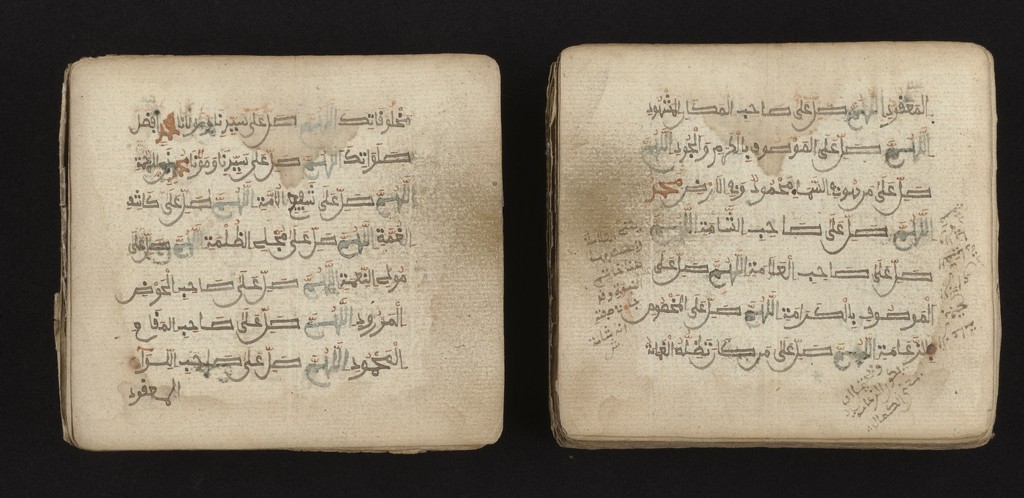 مخلوقاتك اللهم صل على سيدنا ومولانا محمد افضل
صلواتك اللهم صل على سيدنا ومولانا محمد نبي الرحمة
اللهم صل على شفيع الامة اللهم صل على كاشف
الغمة اللهم صل على مجلي الظلمة اللهم صل على
مولي النعمة اللهم صل على صاحب الحوض
المورود اللهم صل على صاحب المقام
المحمود اللهم صل على صاحب اللواء
المعقود
المعقود اللهم صل على صاحب المكان المشهود
اللهم صل على الموصوف بالكرم والجود اللهم
صل على من هو في السماء محمود وفي الارض محمد
اللهم صل على صاحب الشامة اللهم
صل على صاحب العلامة اللهم صل على
الموصوف بالكرامة اللهم صل على المخصوص
بالزعامة اللهم صل على من كان تظله الغمامة